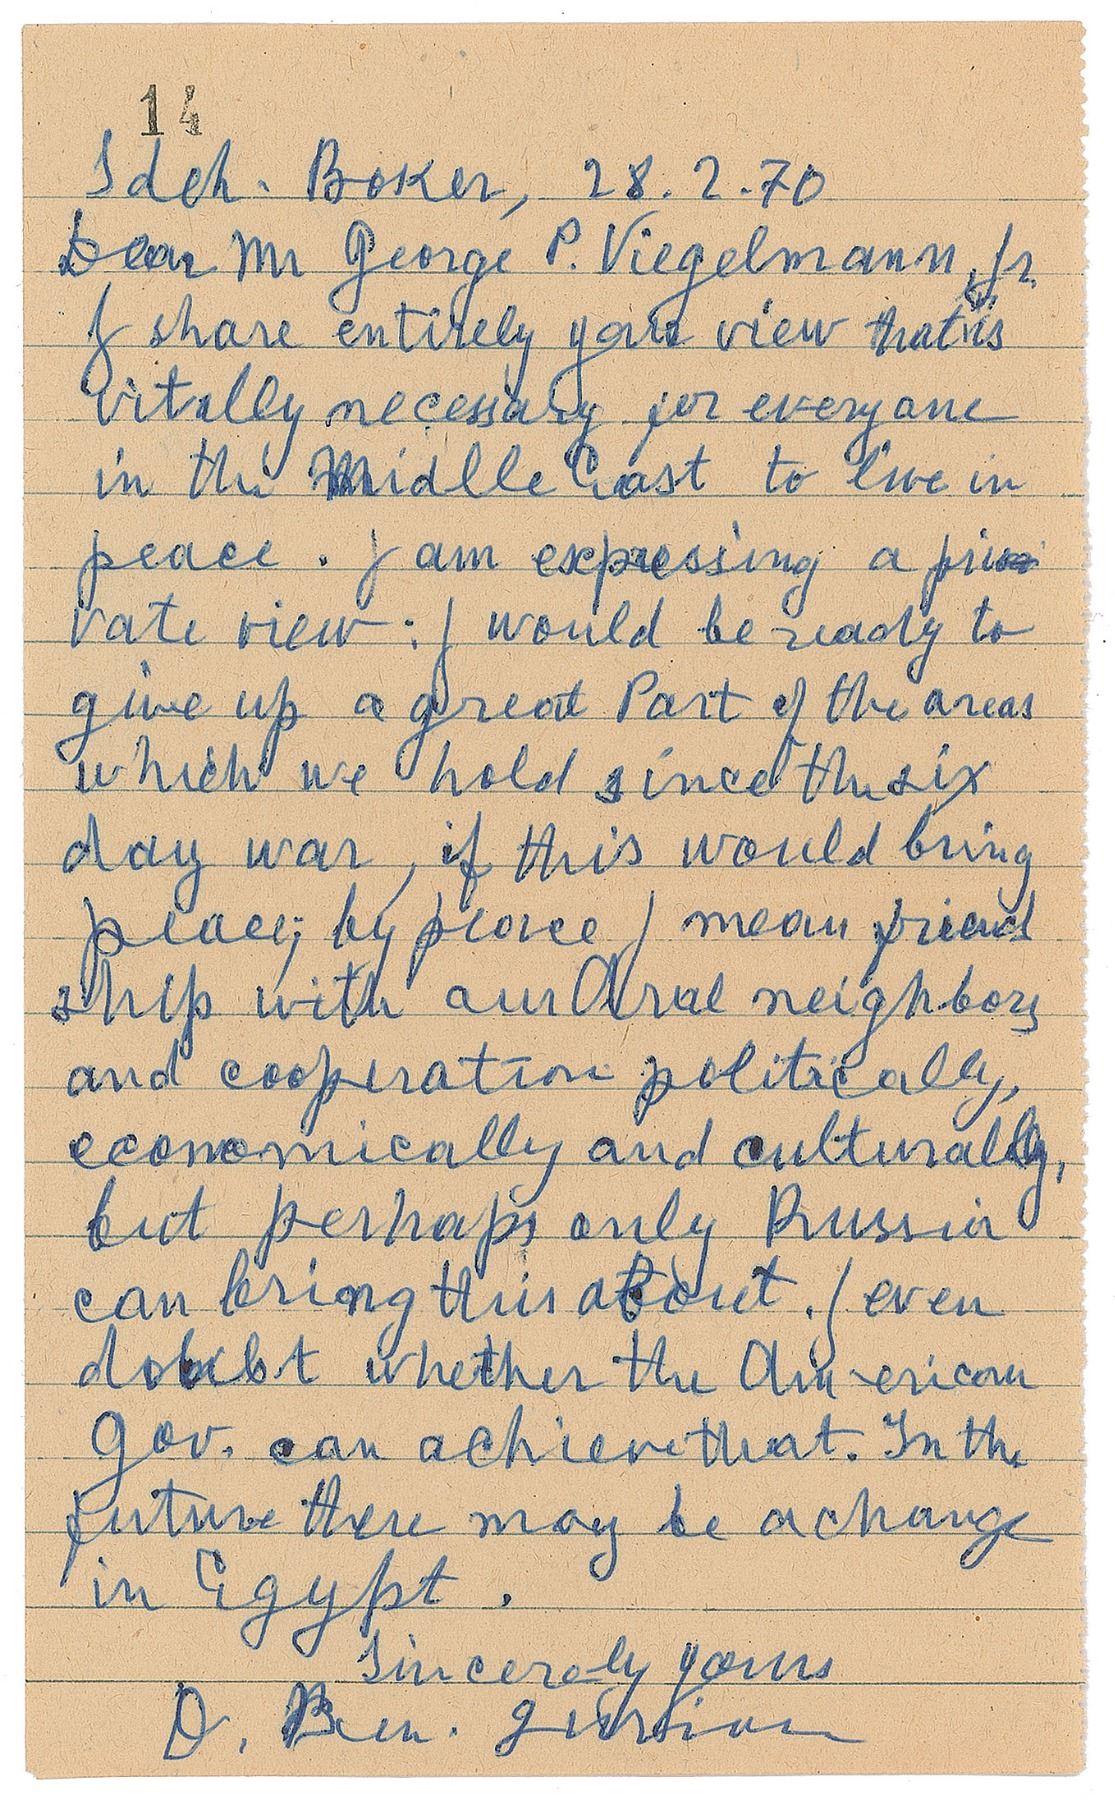 14
Sdeh. Boker, 28.2.70
Dear Mr George P. Viegelmann, Jr.
I share entirely your view that is
vitally necessary for everyone
in the Middle East to live in
peace. I am expressing a pri
vate view: I would be ready to
give up a great Part of the areas
which we hold since the six
day war, if this would bring
peace; by peace I mean friend
ship with our Arab neighbors
and cooperation politically,
economically and culturally,
but perhaps only Russia
can bring this about. I even
doubt whether the American
Gov. can achieve that. In the
future there may be a change
in Egypt.
Sincerely yours
D. Ben. Gurion